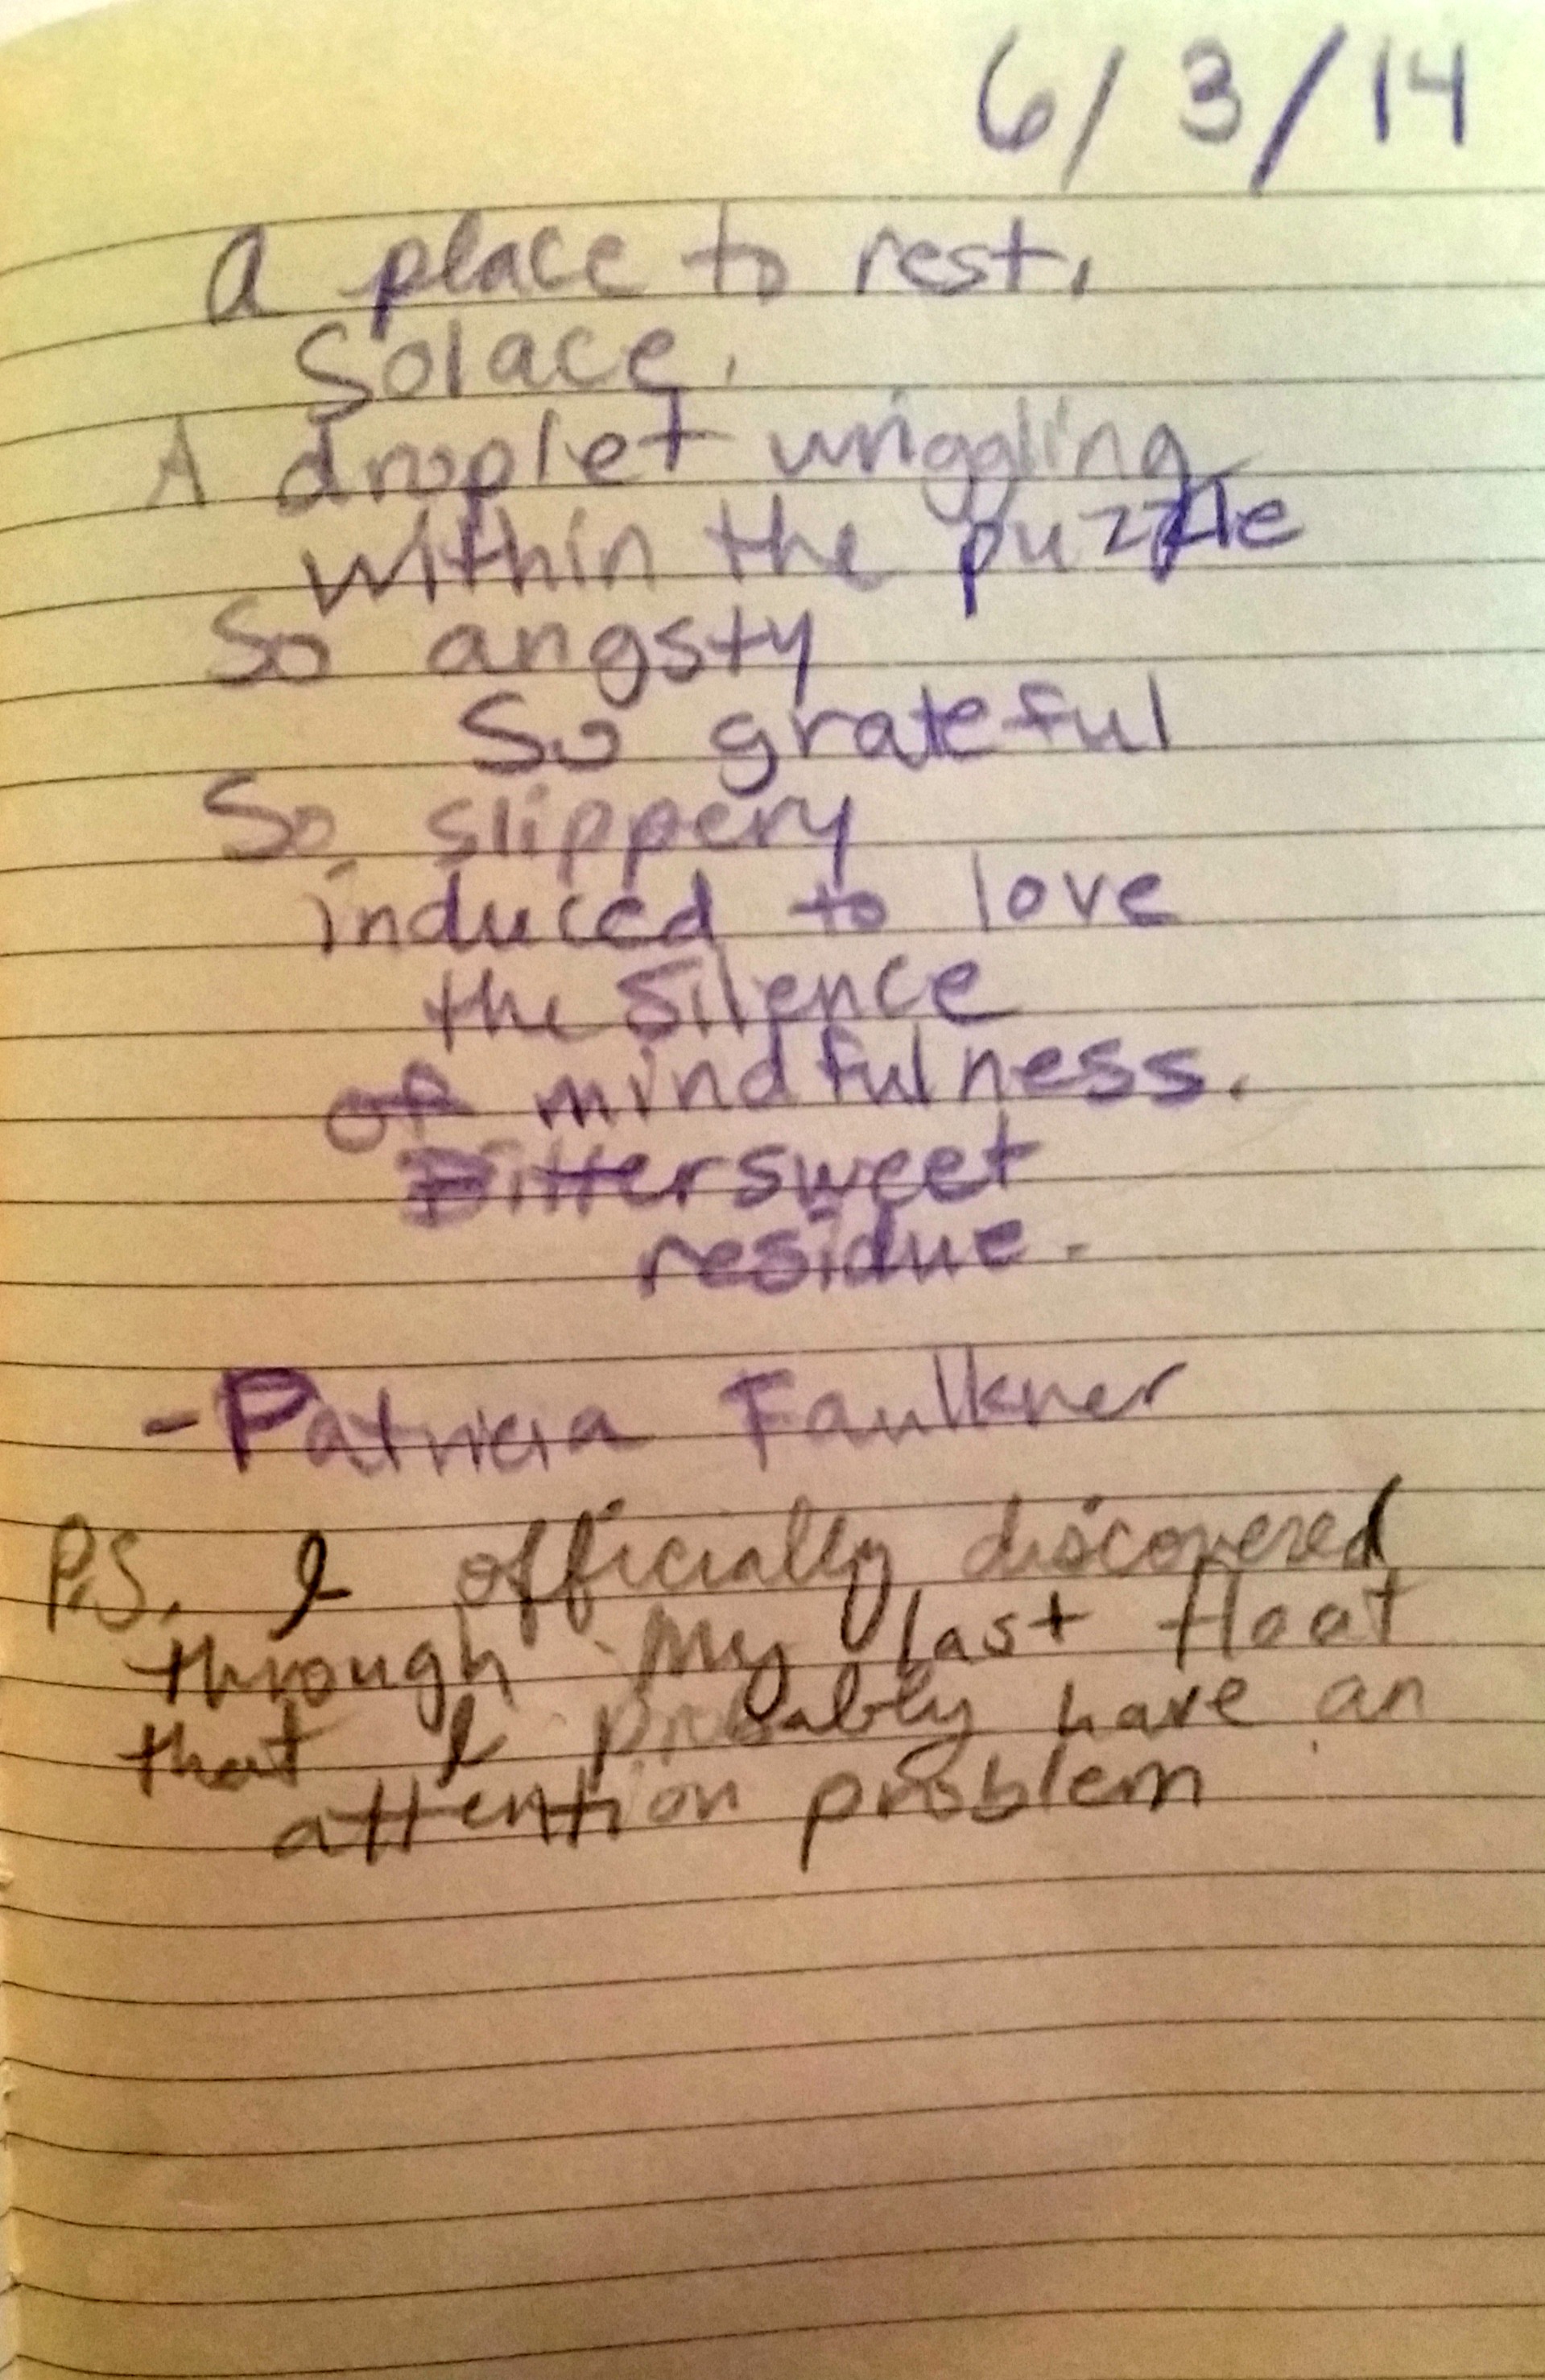 6/3/14
A place to rest.
Solace.
A droplet wriggling
within the puzzle
So angsty
So grateful
So slippery
induced to love
the silence
of mindfulness.
Bittersweet
residue.
-Patricia Faulkner
P.S. I officially discovered
through my last float
that I probably have an
attention problem